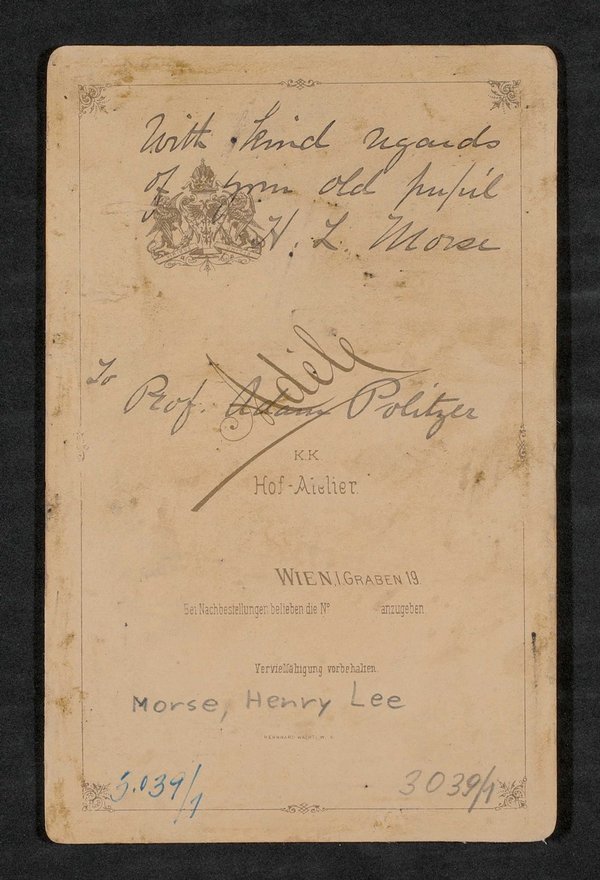 With kind regards
of your old pupil
H. L. Morse
Adèle
To
Prof. Adam Politzer
K.K.
Hof-Atelier.
WIEN, I. GRABEN 19.
Bei Nachbestellungen belieben die Nº anzugeben.
Vervielfältigung vorbehalten.
Morse, Henry Lee
BERNHARD WACHTL W. S.
3.039/1
3039/1